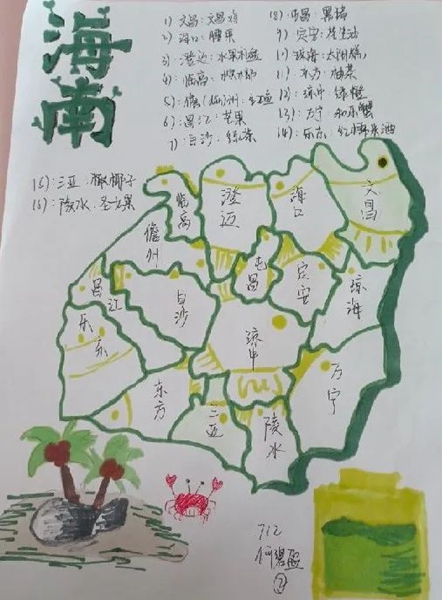 海南
1）文昌：文昌鸡
2）海口：腰果
3）澄迈：水果
4）临高：
5）儋
6）昌江：芒果
7）白沙：绿茶
8）屯昌：黑猪
9）定安：花生油
10）琼海：
11）东方：
12）琼中：绿橙
13）万宁：和乐蟹
14）乐东：
15）：三亚：椰子
16）：陵水：圣女果
临高
澄迈
海口
文昌
儋州
屯昌
定安
琼海
昌江
白沙
琼中
乐东
万宁
东方
三亚
陵水
712